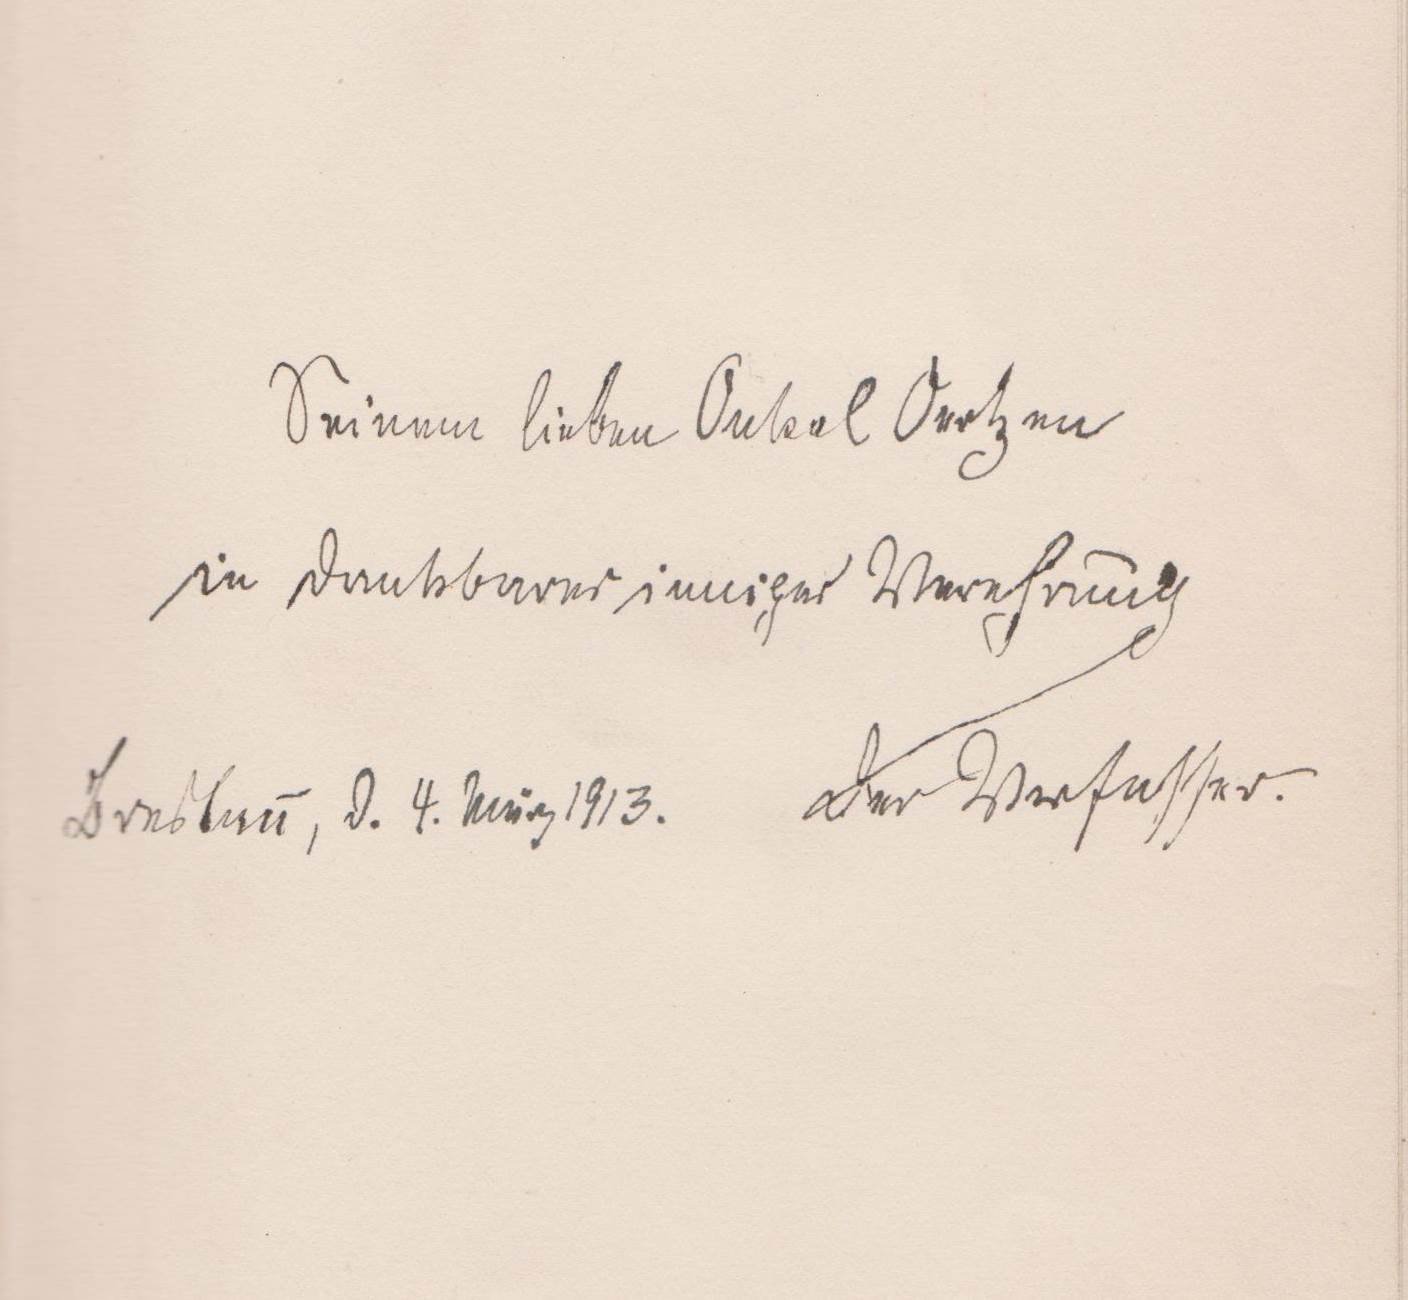 Seinem lieben Onkel Oertzen
in dankbarer inniger Verehrung
Breslau, d. 4. März 1913.
der Verfasser.